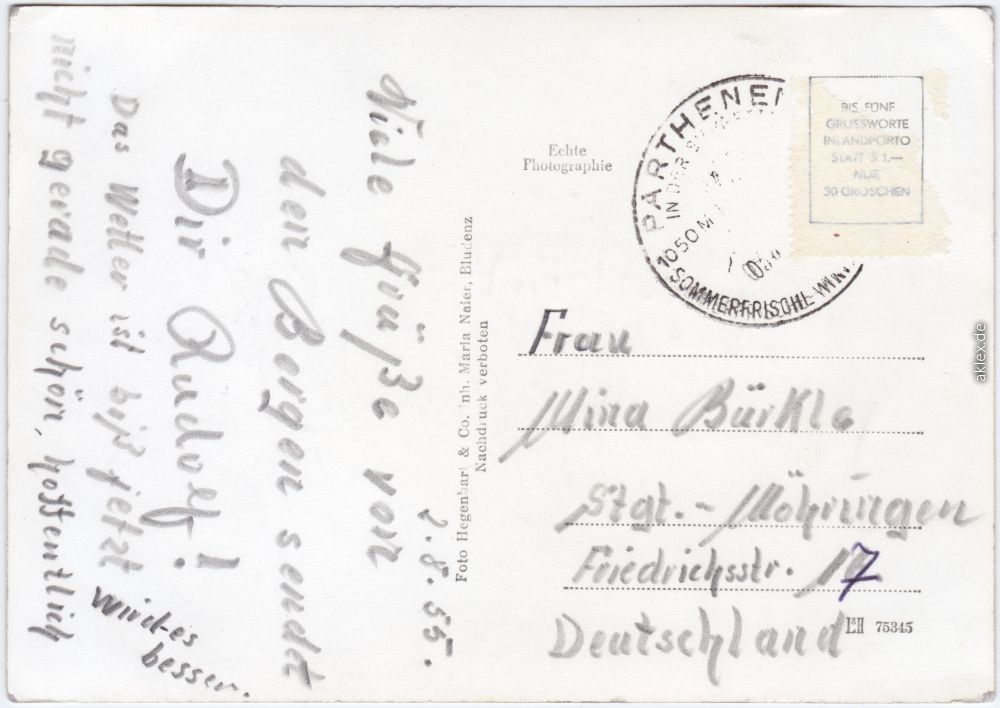 2. 8. 55.
Viele Grüße von
den Bergen sendt
Dir Rudolf!
Das Wetter ist biß jetzt
nicht gerade schön, hoffentlich
wird es
besser.
Echte
Photographie
Foto Hegenbart & Co. Inh. Maria Naier, Bludenz
Nachdruck verboten
PARTHENEN
IN DER
1050 M
SOMMERFRISCHE
BIS FÜNF
GRUSSWORTE
INLANDPORTO
STATT S 1.—
NUR
30 GROSCHEN
Frau
Mina Bürkle
Stgt. - Möhringen
Friedrichsstr. 17
Deutschland
L&H 75345
aklex.de